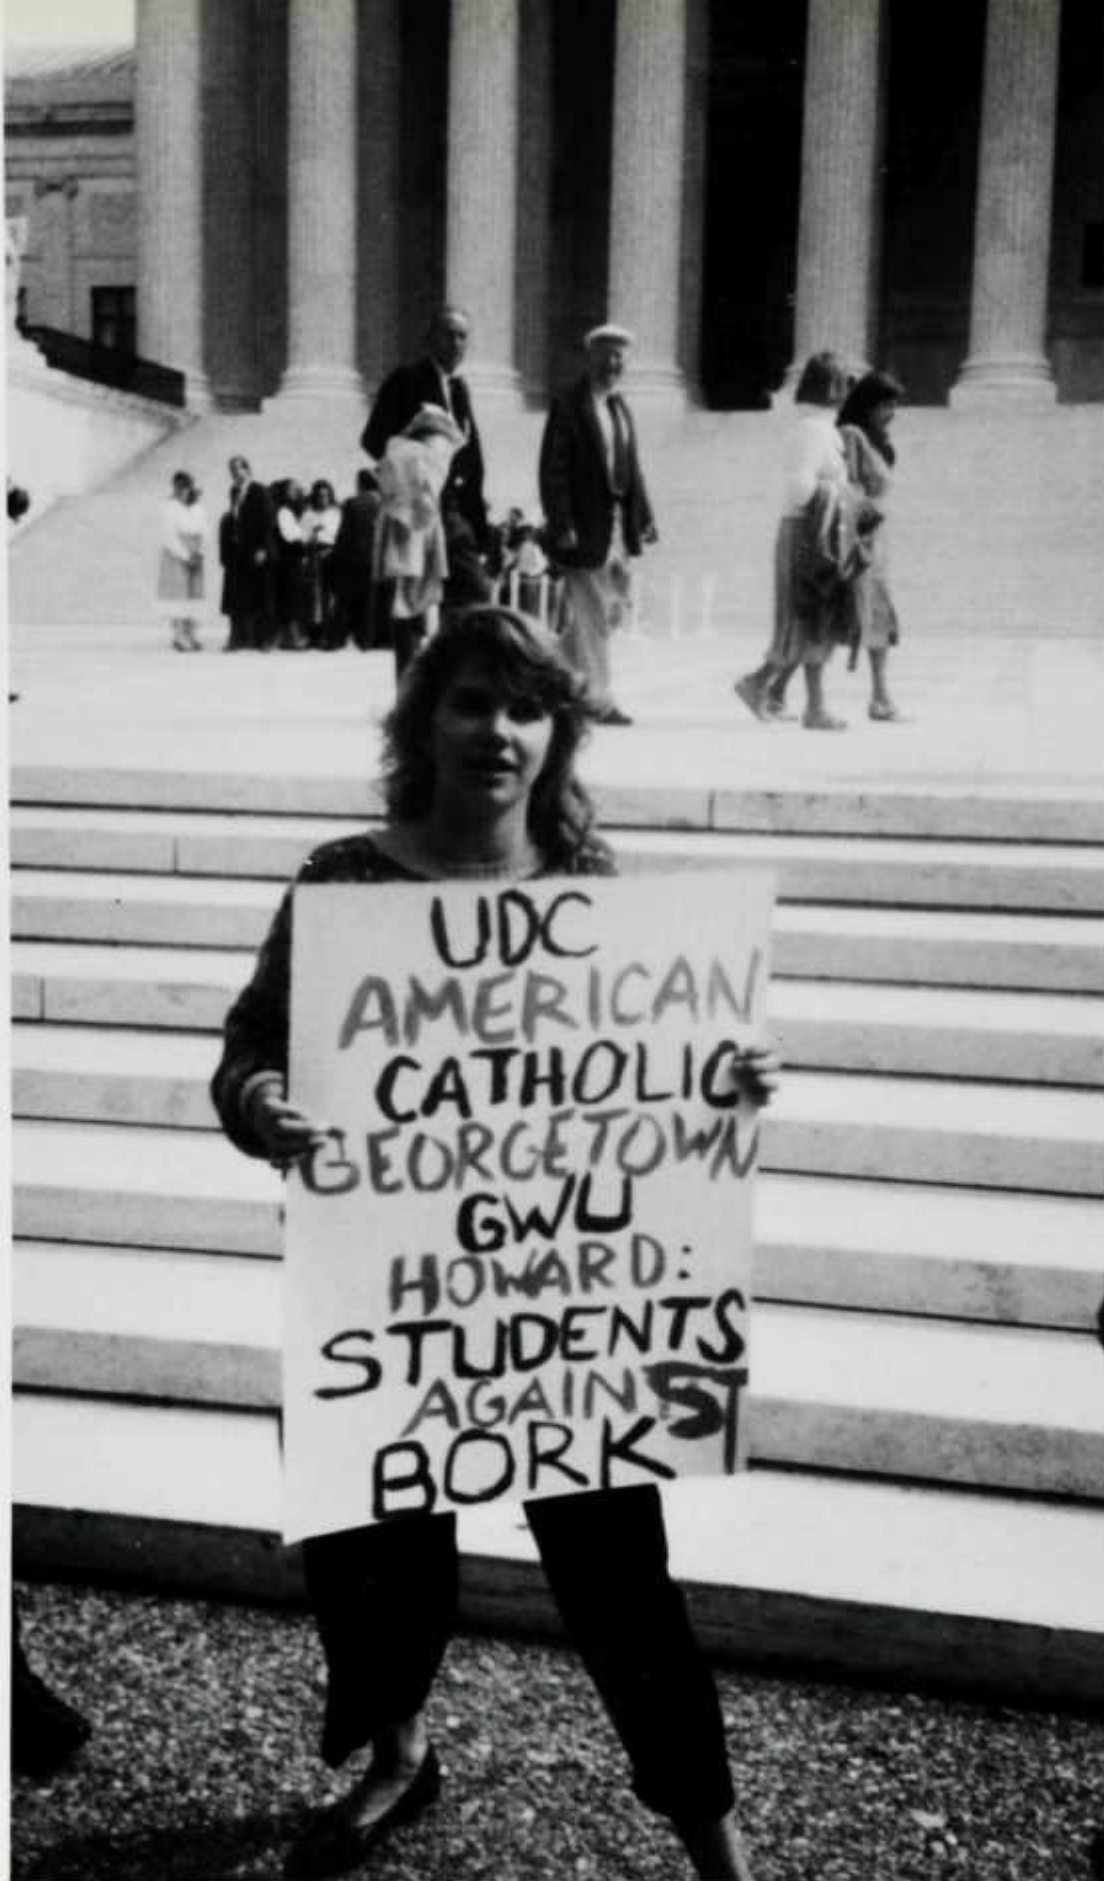 UDC
AMERICAN
CATHOLIC
GEORGETOWN
GWU
HOWARD:
STUDENTS
AGAINST
BORK